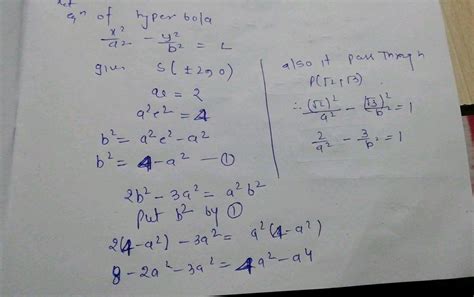 let
eqn of hyperbola
x²/a² - y²/b² = 1
given S(±2,0)
ae = 2
a²e² = 4
b² = a²e² - a²
b² = 4 - a² — ①
also it pass through
P(√2, √3)
∴ (√2)²/a² - (√3)²/b² = 1
2/a² - 3/b² = 1
2b² - 3a² = a²b²
Put b² by ①
2(4 - a²) - 3a² = a²(4 - a²)
8 - 2a² - 3a² = 4a² - a4